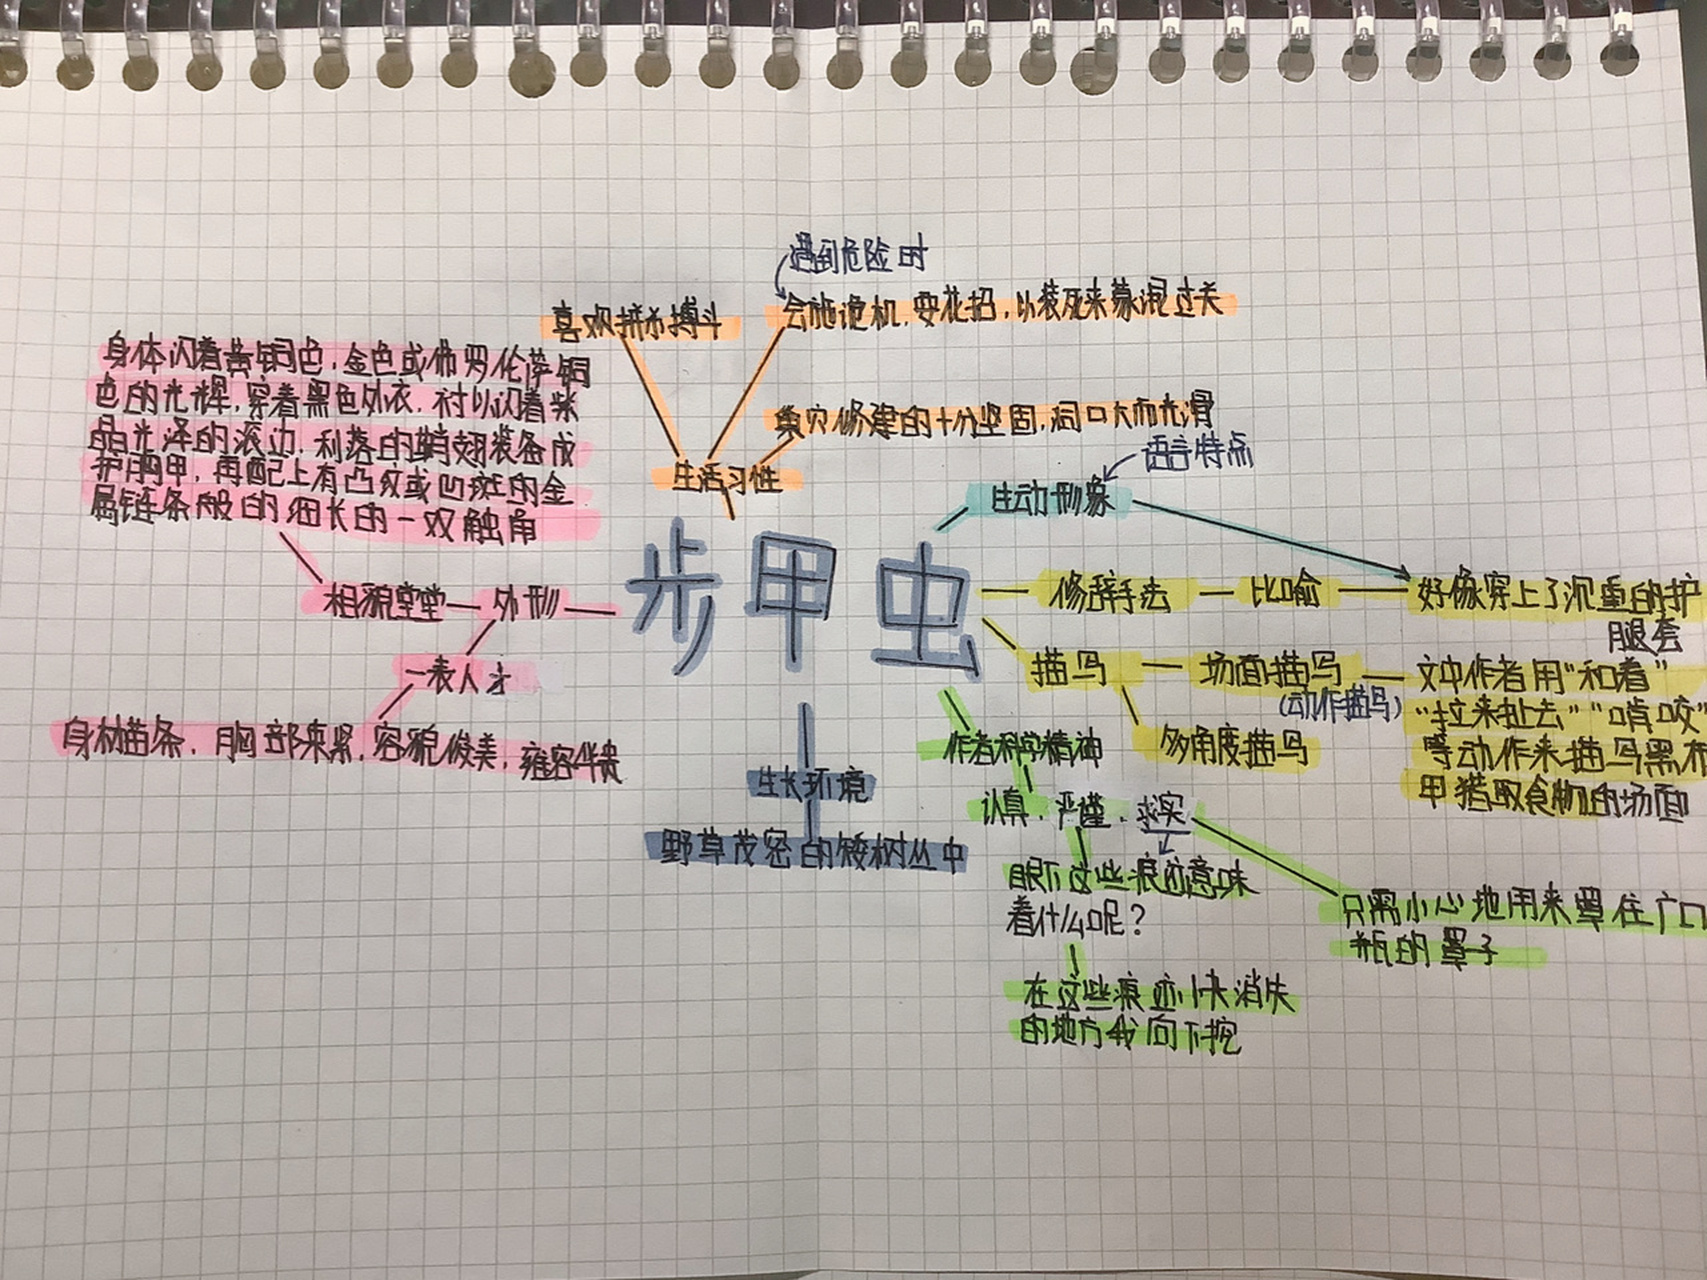 遇到危险时
喜欢拼杀搏斗
会施诡机,耍花招,以装死来蒙混过关
身体闪着黄铜色,金色或佛罗伦萨铜
色的光辉,穿着黑色外衣,衬以闪着紫
晶光泽的滚边,利落的鞘翅装备成
护胸甲,再配上有凸纹或凹斑的金
属链条般的细长的一双触角
巢穴修建的十分坚固,洞口大而光滑
语言特点
生活习性
生动形象
步甲虫
相貌堂堂
外形
一表人才
身材苗条,胸部束紧,容貌俊美,雍容华贵
修辞手法
比喻
好像穿上了沉重的护
腿套
描写
场面描写
(动作描写)
多角度描写
文中作者用“和着”
“拉来扯去”“啃咬”
等动作来描写黑步
甲猎取食物的场面
生长环境
野草茂密的矮树丛中
作者科学精神
认真、严谨、求实
眼下这些痕迹意味
着什么呢?
在这些痕迹快消失
的地方我向下挖
只需小心地用来罩住广口
瓶的罩子